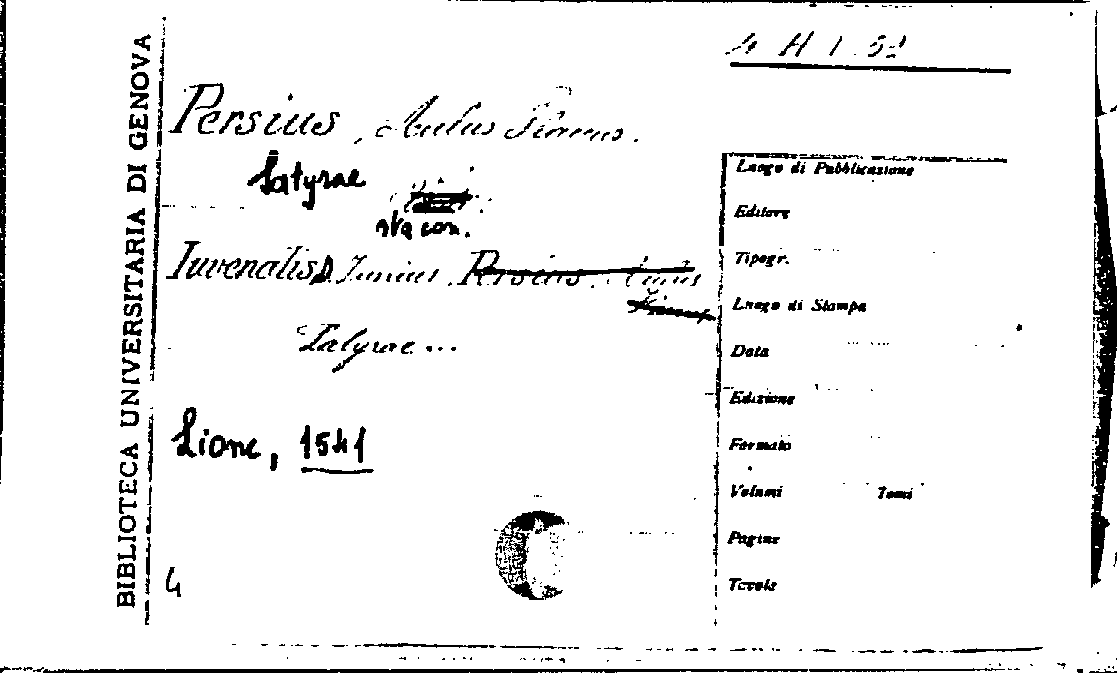 BIBLIOTECA UNIVERSITARIA DI GENOVA
4 H I 52
Persius, Aulus Flaccus.
Satyrae
sta con.
Iuvenalis D. Iunius. Persius. Aulus
Flaccus
Satyrae...
Lione, 1541
4
Luogo di Pubblicazione
Editore
Tipogr.
Luogo di Stampa
Data
Edizione
Formato
Volumi Tomi
Pagine
Tavole